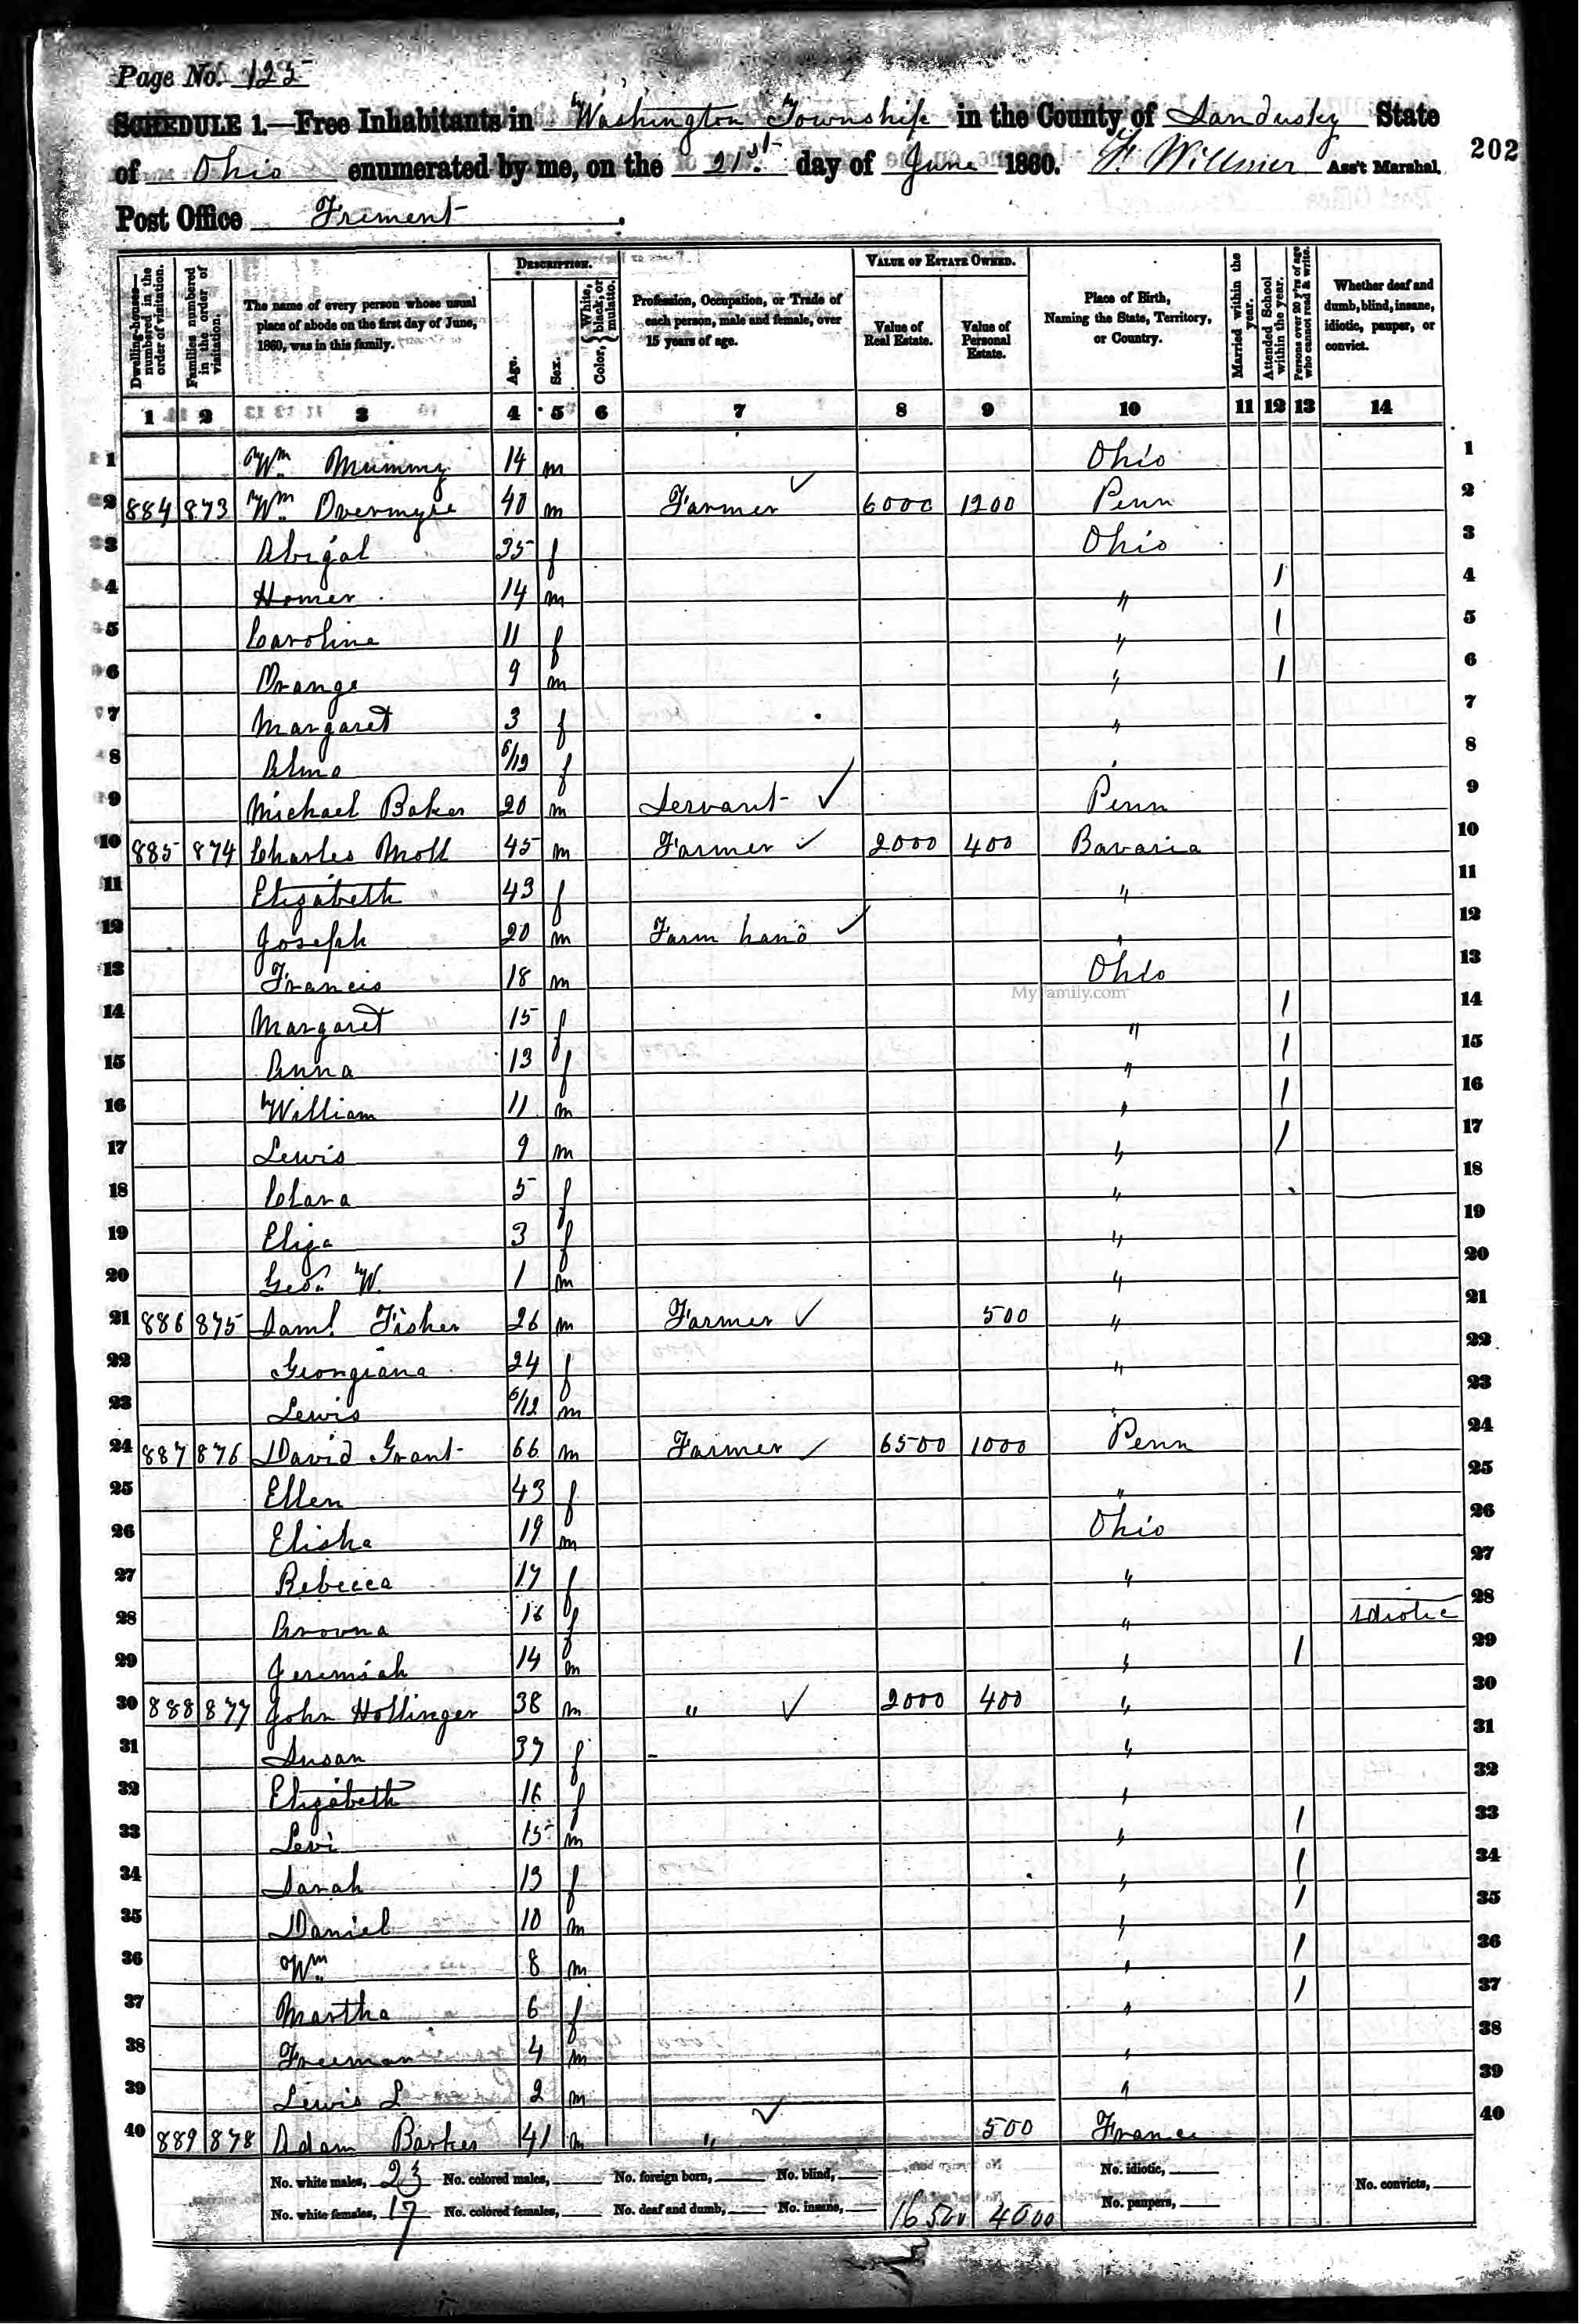 Page No. 125
SCHEDULE 1.—Free Inhabitants in Washington Township in the County of Sandusky State
of Ohio enumerated by me, on the 21st. day of June 1860. F. Willmer Ass't Marshal.
202
Post Office Frement.
Dwelling-houses—numbered in the order of visitation.
Families numbered in the order of visitation.
The name of every person whose usual place of abode on the first day of June, 1860, was in this family.
DESCRIPTION.
Age.
Sex.
Color, { White, black, or mulatto.
Profession, Occupation, or Trade of each person, male and female, over 15 years of age.
VALUE OF ESTATE OWNED.
Value of Real Estate.
Value of Personal Estate.
Place of Birth, Naming the State, Territory, or Country.
Married within the year.
Attended School within the year.
Persons over 20 y'rs of age who cannot read & write.
Whether deaf and dumb, blind, insane, idiotic, pauper, or convict.
1 2 3 4 5 6 7 8 9 10 11 12 13 14
1 Wm Mummy 14 m Ohio 1
2 884 873 Wm Overmyre 40 m Farmer 6000 1200 Penn 2
3 Abigal 35 f Ohio 3
4 Homer 14 m " 1 4
5 Caroline 11 f " 1 5
6 Orange 9 m " 1 6
7 Margaret 3 f " 7
8 Alma 6/12 f " 8
9 Michael Baker 20 m Servant Penn 9
10 885 874 Charles Moll 45 m Farmer 2000 400 Bavaria 10
11 Elizabeth " 43 f " 11
12 Joseph 20 m Farm hand " 12
13 Francis 18 m Ohio 13
MyFamily.com
14 Margaret 15 f " 1 14
15 Anna 13 f " 1 15
16 William 11 m " 1 16
17 Lewis 9 m " 1 17
18 Clara 5 f " 18
19 Eliza 3 f " 19
20 Geo. W. 1 m " 20
21 886 875 Saml. Fisher 26 m Farmer 500 " 21
22 Georgiana 24 f " 22
23 Lewis 6/12 m " 23
24 887 876 David Grant 66 m Farmer 6500 1000 Penn 24
25 Ellen 43 f " 25
26 Elisha 19 m Ohio 26
27 Rebecca 17 f " 27
28 Arovna 16 f " Idiotic 28
29 Jeremiah 14 m " 1 29
30 888 877 John Hollinger 38 m " 2000 400 " 30
31 Susan 37 f " 31
32 Elizabeth 16 f " 32
33 Levi " 15 m " 1 33
34 Sarah 13 f " 1 34
35 Daniel 10 m " 1 35
36 Wm 8 m " 1 36
37 Martha 6 f " 1 37
38 Freeman 4 m " 38
39 Lewis L 2 m " 39
40 889 878 Adam Barker 41 m " 500 France 40
No. white males, 23 No. colored males, No. foreign born, No. blind, No. idiotic,
No. white females, 17 No. colored females, No. deaf and dumb, No. insane, 16500 4000 No. paupers, No. convicts,